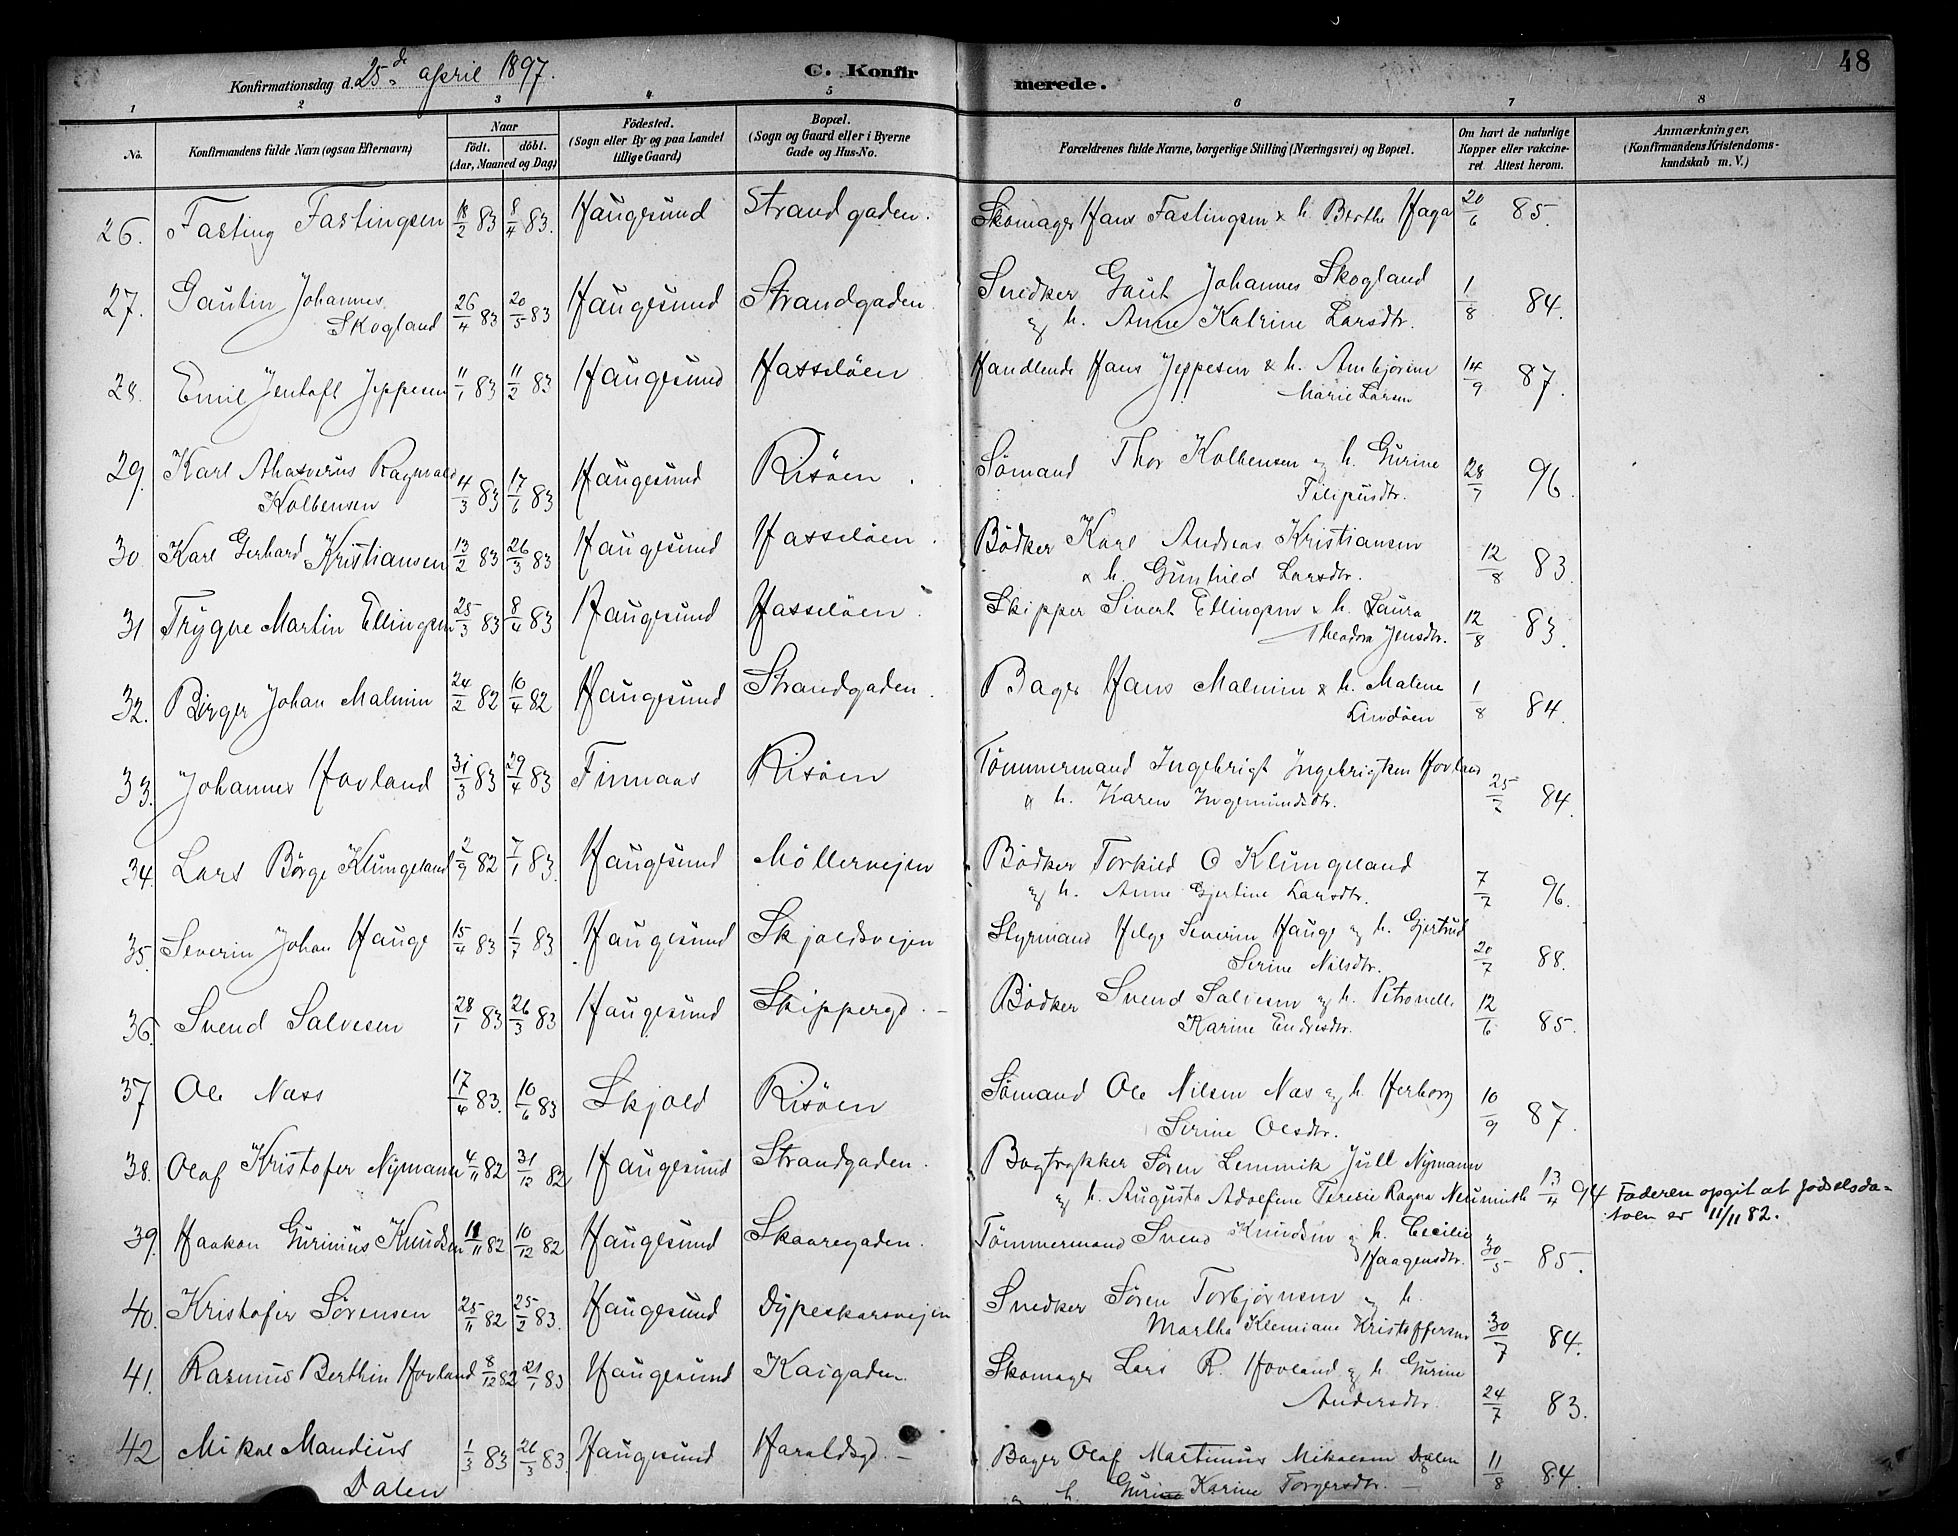 Konfirmationsdag d. 25de april 1897.
C. Konfirmerede.
48
1 2 3 4 5 6 7 8
No.
Konfirmandens fulde Navn (ogsaa Efternavn)
Naar
födt. döbt.
(Aar, Maaned og Dag)
Födested.
(Sogn eller By og paa Landet
tillige Gaard)
Bopæl.
(Sogn og Gaard eller i Byerne
Gade og Hus-No.
Forældrenes fulde Navne, borgerlige Stilling (Næringsvei) og Bopæl.
Om havt de naturlige
Kopper eller vakcine-
ret. Attest herom.
Anmærkninger.
(Konfirmandens Kristendoms-
kundskab m. V.)
26. Fasting Fastingsen 18/2 83 8/4 83. Haugesund Strandgaden. Skomager Hans Fastingsen & h. Berthe Haga 20/6 85.
27. Gautin Johannes 26/4 83 20/5 83 Haugesund Strandgaden. Snedker Gaut Johannes Skogland 1/8 84.
Skogland og h. Anne Katrine Larsdtr.
28. Emil Jentoft Jeppesen 11/1 83 11/2 83 Haugesund Hasseløen Handlende Hans Jeppesen & h. Ambjørine 14/9 87.
Marie Larsen
29. Karl Ahasverus Ragnvald 4/3 83 17/6 83 Haugesund Risøen. Sømand Thor Kolbensen og h. Gurine 28/7 96.
Kolbensen Filipusdtr.
30. Karl Gerhard Kristiansen 13/2 83 26/3 83 Haugesund Hasseløen. Bødker Karl Andreas Kristiansen
& h. Gunhild Larsdtr. 12/8 83.
31 Trygve Martin Ellingsen 25/3 83 8/4 83 Haugesund Hasseløen. Skipper Sivert Ellingsen & h. Laura 12/8 83.
Theodora Jensdtr.
32. Birger Johan Malmin 24/2 82 10/4 82 Haugesund Strandgaden. Bager Hans Malmin & h. Malene 1/8 84.
Lindøen
33. Johannes Hovland 31/3 83 29/4 83 Finnaas Risøen Tømmermand Ingebrigt Ingebrigtsen Hovland
& h. Karen Ingemundsdtr. 25/7 84.
34. Lars Børge Klungeland 2/9 82 7/1 83. Haugesund Møllervejen Bødker Torkild O Klungeland
og h. Anne Gjertine Larsdtr. 7/7 96.
35. Severin Johan Hauge 15/4 83 1/7 83 Haugesund Skjoldsvejen Styrmand Helge Severin Hauge og h. Gjertrud
Serine Nilsdtr. 20/7 88.
36. Svend Salvesen 28/1 83 26/3 83 Haugesund Skippergd. Bødker Svend Salvesen og h. Petronelle 12/6 85.
Karine Endresdtr.
37 Ole Næss 17/4 83. 10/6 83 Skjold Risøen Sømand Ole Nilsen Næs og h. Herborg 10/9 87.
Serine Olesdtr.
38. Olaf Kristofer Nymann 4/11 82 31/12 82 Haugesund Strandgaden. Bogtrykker Søren Lemmik Jull Nymann
og h. Augusta Adolfine Teresie Ragna Neuminth 13/4 94 Faderen opgit at fødselsda-
toen er 11/11 82.
39. Haakon Gurinius Knudsen 18/11 82 10/12 82 Haugesund Skaaregaden. Tømmermand Svend Knudsen og h. Cecilie
Haagensdtr. 30/5 85.
40. Kristofer Sørensen 25/11 82 25/2 83. Haugesund Dypeskarsvejen Snedker Søren Torbjørnsen og h.
Martha Klemiane Kristoffersen 30/7 84.
41. Rasmus Berthin Hovland 8/12 82 21/1 83 Haugesund Kaigaden. Skomager Lars R. Hovland og h. Gurine
Andersdtr. 24/7 83.
42 Mikal Mandius 1/3 83 26/3 83. Haugesund Haraldsgd. Bager Olaf Martinius Mikalsen Dalen 11/8 84.
Dalen og h. Gurine Karine Torgersdtr.